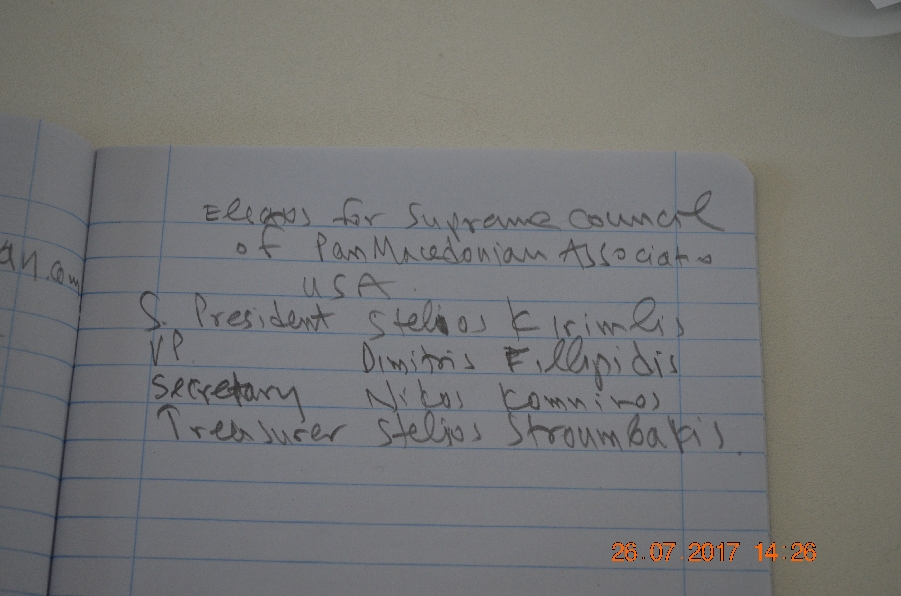 for Supreme Council
of PanMacedonian
USA.
S. President Stelios Kirimlis
VP Dimitris Fillipidis
Secretary Nikos Komninos
Treasurer Stelios Stroumbakis
an.com
26.07.2017 14:26